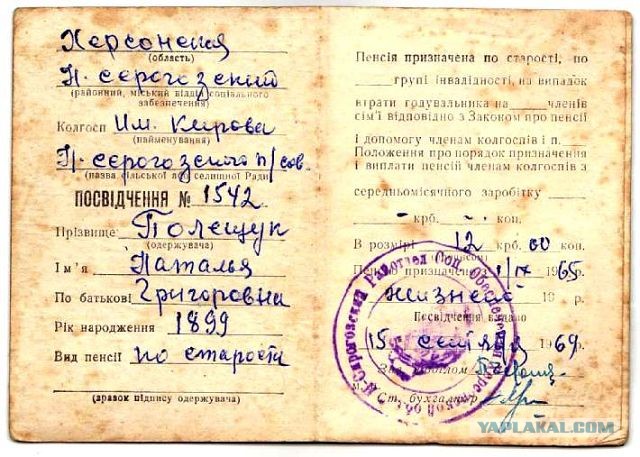 Херсонская
(область)
Н. серогозский
(районний, міський відділ соціального
забезпечення)
Колгосп Им. Кирова
(найменування)
Н. серогозского п/сов.
(назва сільської або селищної Ради)
ПОСВІДЧЕННЯ № 1542
Прізвище Полещук
(одержувача)
Ім'я Наталья
По батькові Григоровна
Рік народження 1899
Вид пенсії по старости
(зразок підпису одержувача)
Пенсія призначена по старості, по
групі інвалідності, на випадок
втрати годувальника на членів
сім'ї відповідно з Законом про пенсії
і допомогу членам колгоспів і п.
Положення про порядок призначення
і виплати пенсій членам колгоспів з
середньомісячного заробітку
- крб. - коп.
В розмірі 12 крб. 00 коп.
(прописом)
Пенсію призначено з 1965
жизнено 19 р
Посвідчення видано
15 сентября 1964
Зав. відділом
Ст. бухгалтер
Н. Серогозский Райотдел Соц. Обеспечения Херсонской обл.
YAPLAKAL.COM